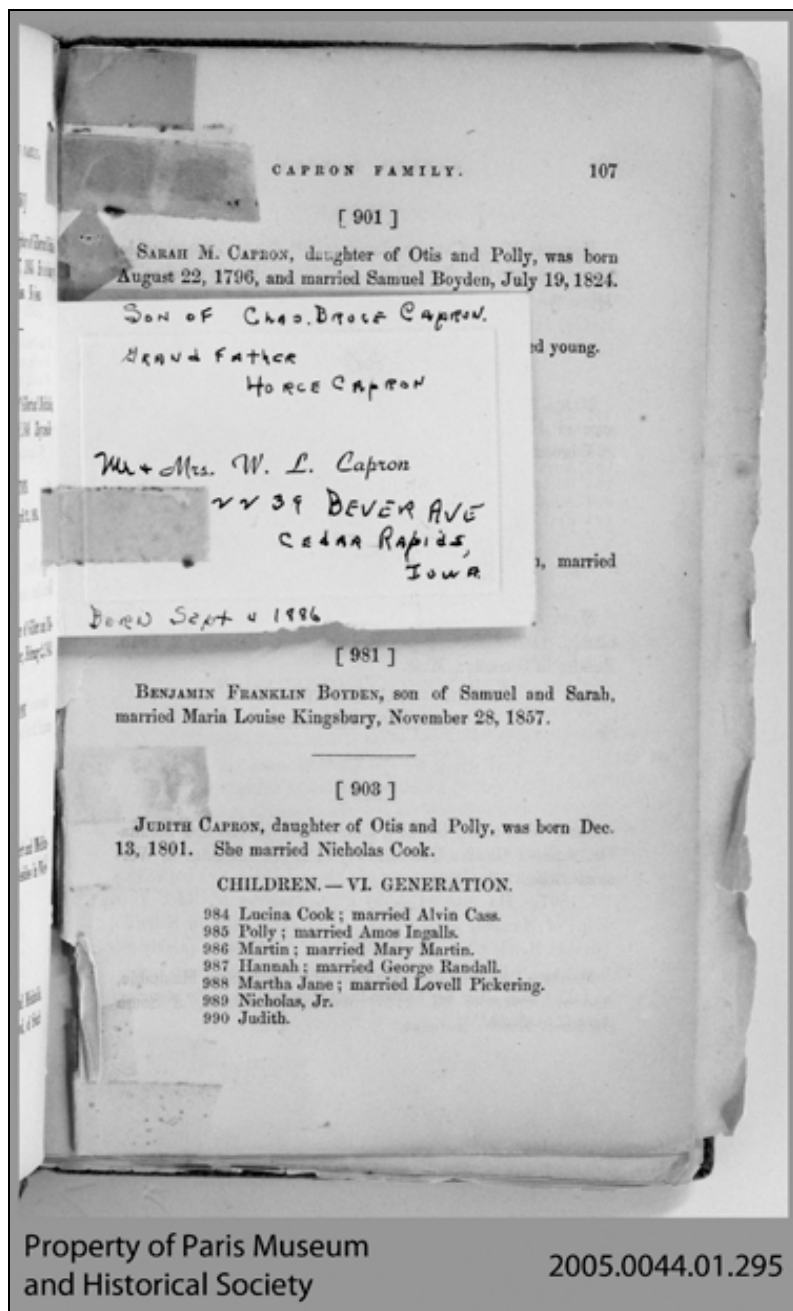 CAPRON FAMILY. 107
[ 901 ]
SARAH M. CAPRON, daughter of Otis and Polly, was born
August 22, 1796, and married Samuel Boyden, July 19, 1824.
SON OF CHAS. BRUCE CAPRON.
GRAND FATHER
HORCE CAPRON
ed young.
Mr + Mrs. W. L. Capron
2239 BEVER AVE
CEDAR RAPIDS,
IOWA
married
BORN Sept 1886
[ 981 ]
BENJAMIN FRANKLIN BOYDEN, son of Samuel and Sarah,
married Maria Louise Kingsbury, November 28, 1857.
[ 903 ]
JUDITH CAPRON, daughter of Otis and Polly, was born Dec.
13, 1801. She married Nicholas Cook.
CHILDREN.—VI. GENERATION.
984 Lucina Cook ; married Alvin Cass.
985 Polly ; married Amos Ingalls.
986 Martin ; married Mary Martin.
987 Hannah ; married George Randall.
988 Martha Jane ; married Lovell Pickering.
989 Nicholas, Jr.
990 Judith.
Property of Paris Museum
and Historical Society
2005.0044.01.295